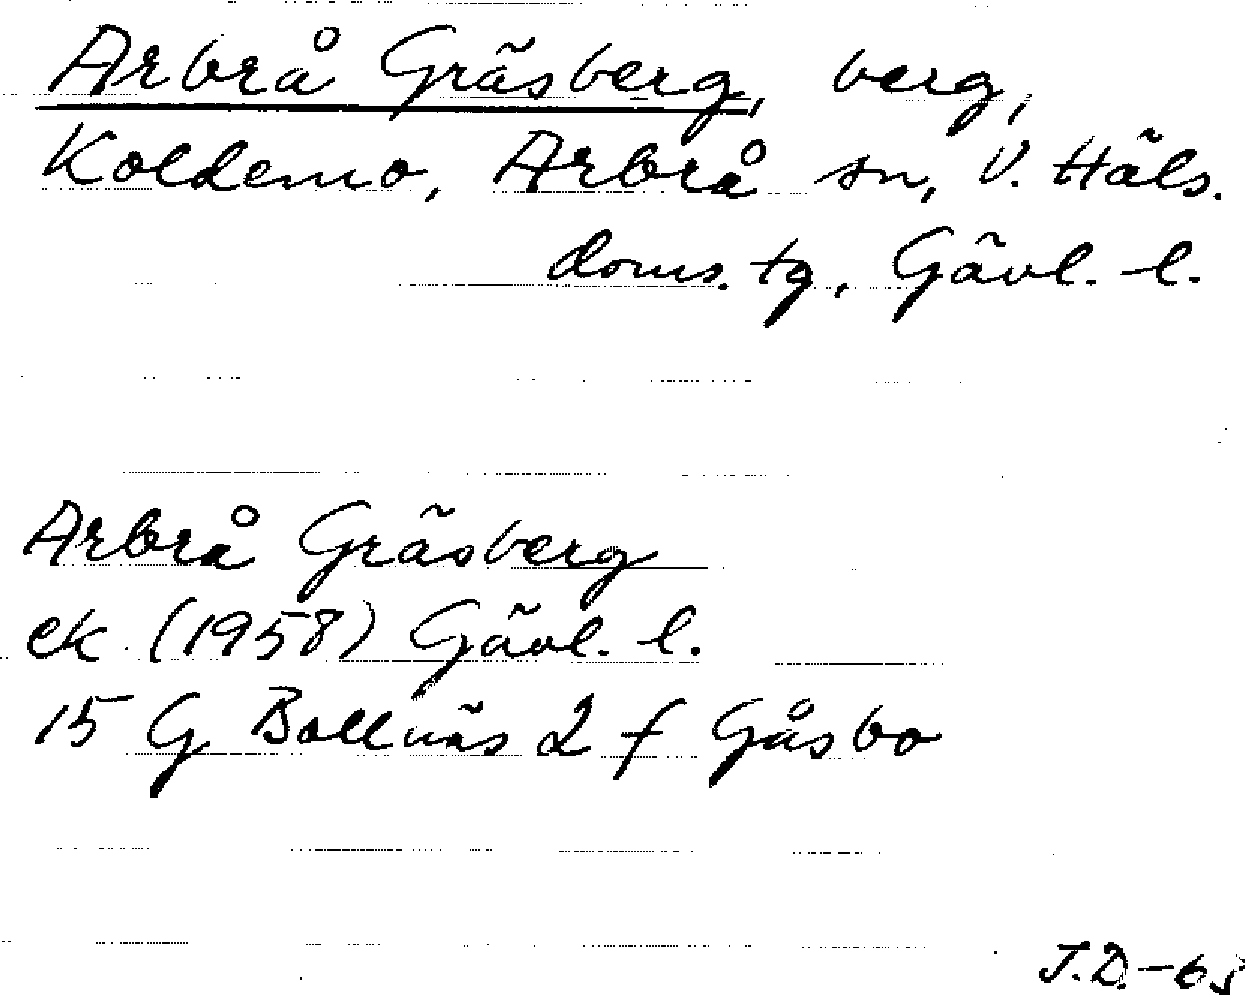 Arbrå Gräsberg, berg,
Koldemo, Arbrå sn, V. Häls.
doms. tg, Gävl. l.
Arbrå Gräsberg
ek (1958) Gävl. l.
15 G Bollnäs 2 f Gåsbo
J.D.-65